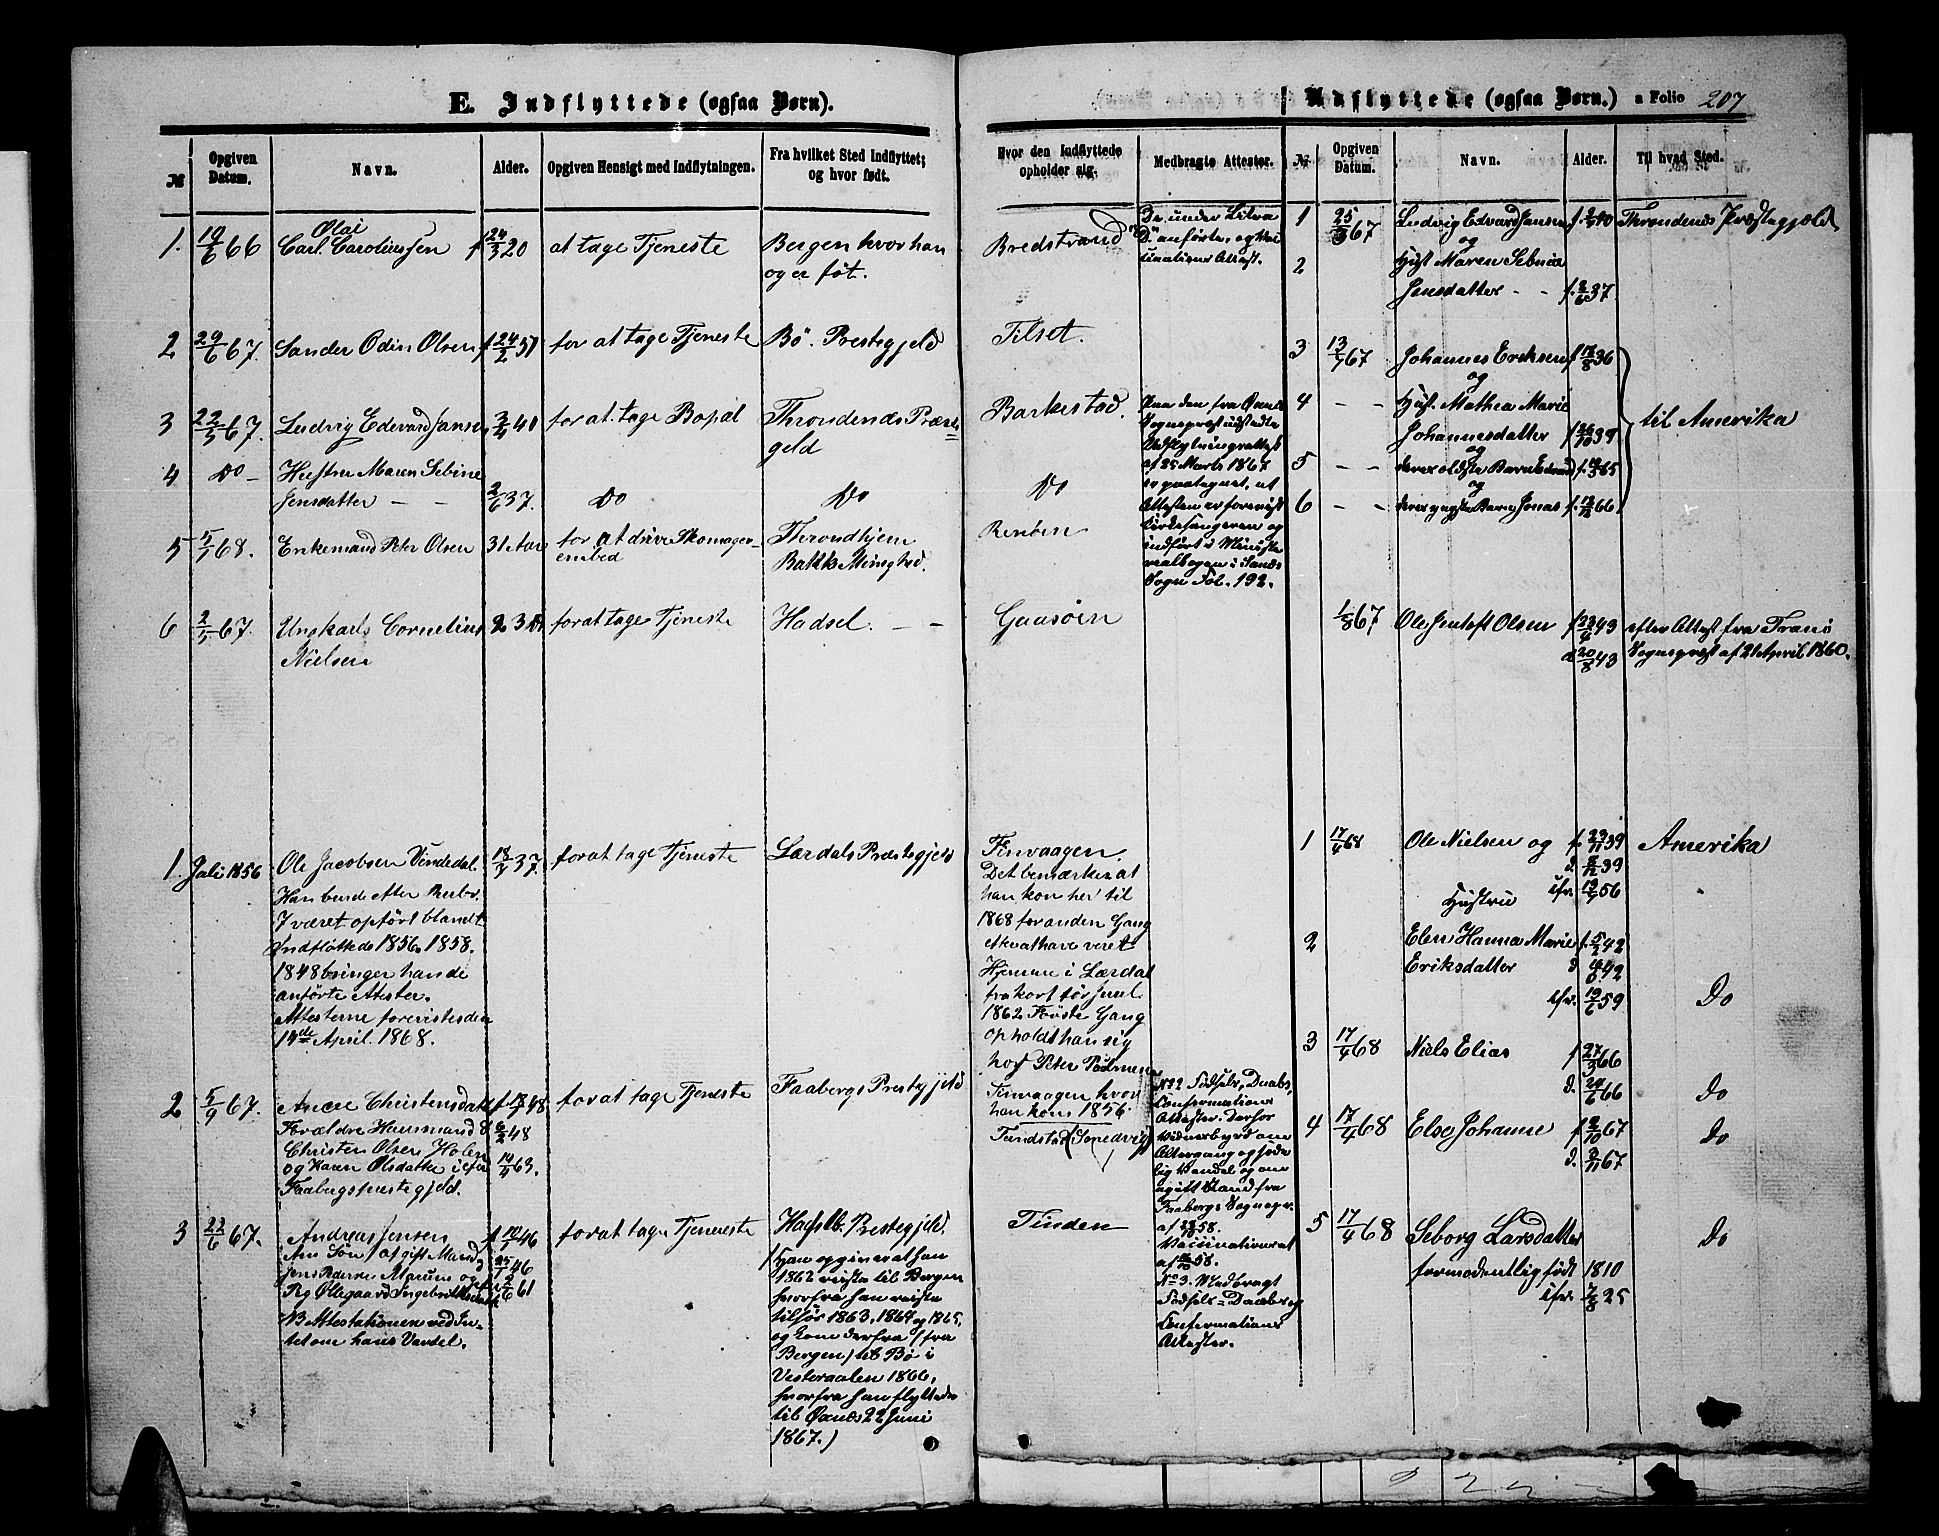 E. Indflyttede (ogsaa Børn).
№ Opgiven Datum. Navn. Alder. Opgiven Hensigt med Indflytningen. Fra hvilket Sted Indflyttet; og hvor født.
1. 19/6 66 Carl Olai Caroliussen f 24/3 20 at tage Tjeneste Bergen hvor han
og er føt.
2 29/6 67. Sander Odin Olsen f 24/2 51 for at tage Tjeneste Bö. Prestegjeld
3 22/5 67. Ludvig Edevard Janse 3/4 40 for at tage Bopæl Throndenes Præste=
geld
4 Do - Hustru Maren Sebine
Jensdatter - - 2/6 37. Do Do
5 5/1 68. Enkemand Peter Olsen 31 Aar for at drive Skomager- Throndhjem
embed Bakke Menighed.
6 2/5 67. Ungkarls Cornelius 23 Ar for at tage Tjeneste Hadsel - -
Nielsen
1. Juli 1856 Ole Jacobsen Vindedal. 18/4 37. for at tage Tjeneste Lærdals Præstegjeld
Han burde efter
7 været opført blandt
Indfløttede 1856. 1858.
1848 bringer han de
anförte Atester.
Attesterne forevistes den
14de April 1868.
2 5/9 67. Christensdatt f 18/1 48 for at tage Tjeneste Faabergs Prestegjeld
Forældre Huusmand 6/2 48
Christen Olsen Holen
og Karen Olsdatter i 14/4 63.
Faabergs prestegjeld.
3 22/6 67. Andreas Jensen f 10/1 46 for at tage Tjeneste Prestegjeld.
Søn af gift Mand 25/1 46 (Han opgiver at han
Jens og 2/6 61 1862 reiste til Bergen
Pig Ollegaard Ingebrittsdatt hvorfra han reiste
NB Attestationen ved In- tilsös 1863, 1864 og 1865,
tet om hans Vandel. og kom derfra (fra
Bergen) til Bö i
Vesteraalen 1866,
hvorfra han flyttede
til Øxnes 22 Juni
1867.)
Udflyttede (ogsaa Børn.) a Folio 207
Hvor den Indflyttede opholder sig. Medbragte Attester. № Opgiven Datum. Navn. Alder. Til hvad Sted.
Bredstrand De under Litra
D. anførte, og Vac
cinations Attest.
1 25/3 67 Ludvig Edvard Jansen f. 3/4 40 Throndenes Præstegjeld
og
2 Hust Maren Sebina
Jensdatter - - f. 2/6 37
Tilset.
3 13/4 67 Johannes Eriksen f 17/8 36
og
Barkestad. Paa den fra Øxnes
Sognepræst udstedte
Udflytningsattest
af 25 Marts 1867
er paategnet, at
Attesten er forevist
Kirkesangeren og
indført i Ministe
rialbogen i Sands
Sogn Fol. 192.
4 - - Hust. Mathea Marie
Johannesdatter f 26/10 39 til Amerika
og
5 - - deres ældste Barn Edvard f. 18/3 65
og
6 - - deres yngste Barn Jonas f. 13/12 66
Do
Renöen
Gaasöen
1/8 67 Ole Olsen f 23/4 43 efter Attest fra Tranö
d 20/8 43 Sognepræst af 21 April 1860.
Tinvaagen.
Det bemærkes at
han kom her til
1868 for anden Gang
efter at have veret
Hjemme i Lærdal
fra kort för Juul
1862 Förste Gang
opholdt han sig
hos Peter
Tinvaagen hvor
han kom 1856.
Tundstad
Tinden
1 17/4 68 Ole Nielsen og f. 23/11 39 Amerika
d. 8/12 39
Hustru cfr. 13/7 56
2 Elen Hanna Marie f. 5/2 42
Eriksdatter d 42
cfr. 19/6 59 Do
3 17/4 68 Niels Elias f 27/3 66
d. 24/6 66 Do
No 2 Födsels, Daabs,
Confirmations
Attester. Derfor
Vidnesbyrd om
Altergang og
lig Vandel og om
ugift Stand fra
Faabergs Sognepr.
af 58.
Vaccinationsat
af 58.
No 3. Medbragt
Födsels- Daabs og
Confirmations
Attester.
4 17/4 68 Else Johanne f 2/10 67 Do
d. 3/11 67
5 17/4 68 Seborg Larsdatter
formodentlig födt 1810 Do
cfr. 7/8 25